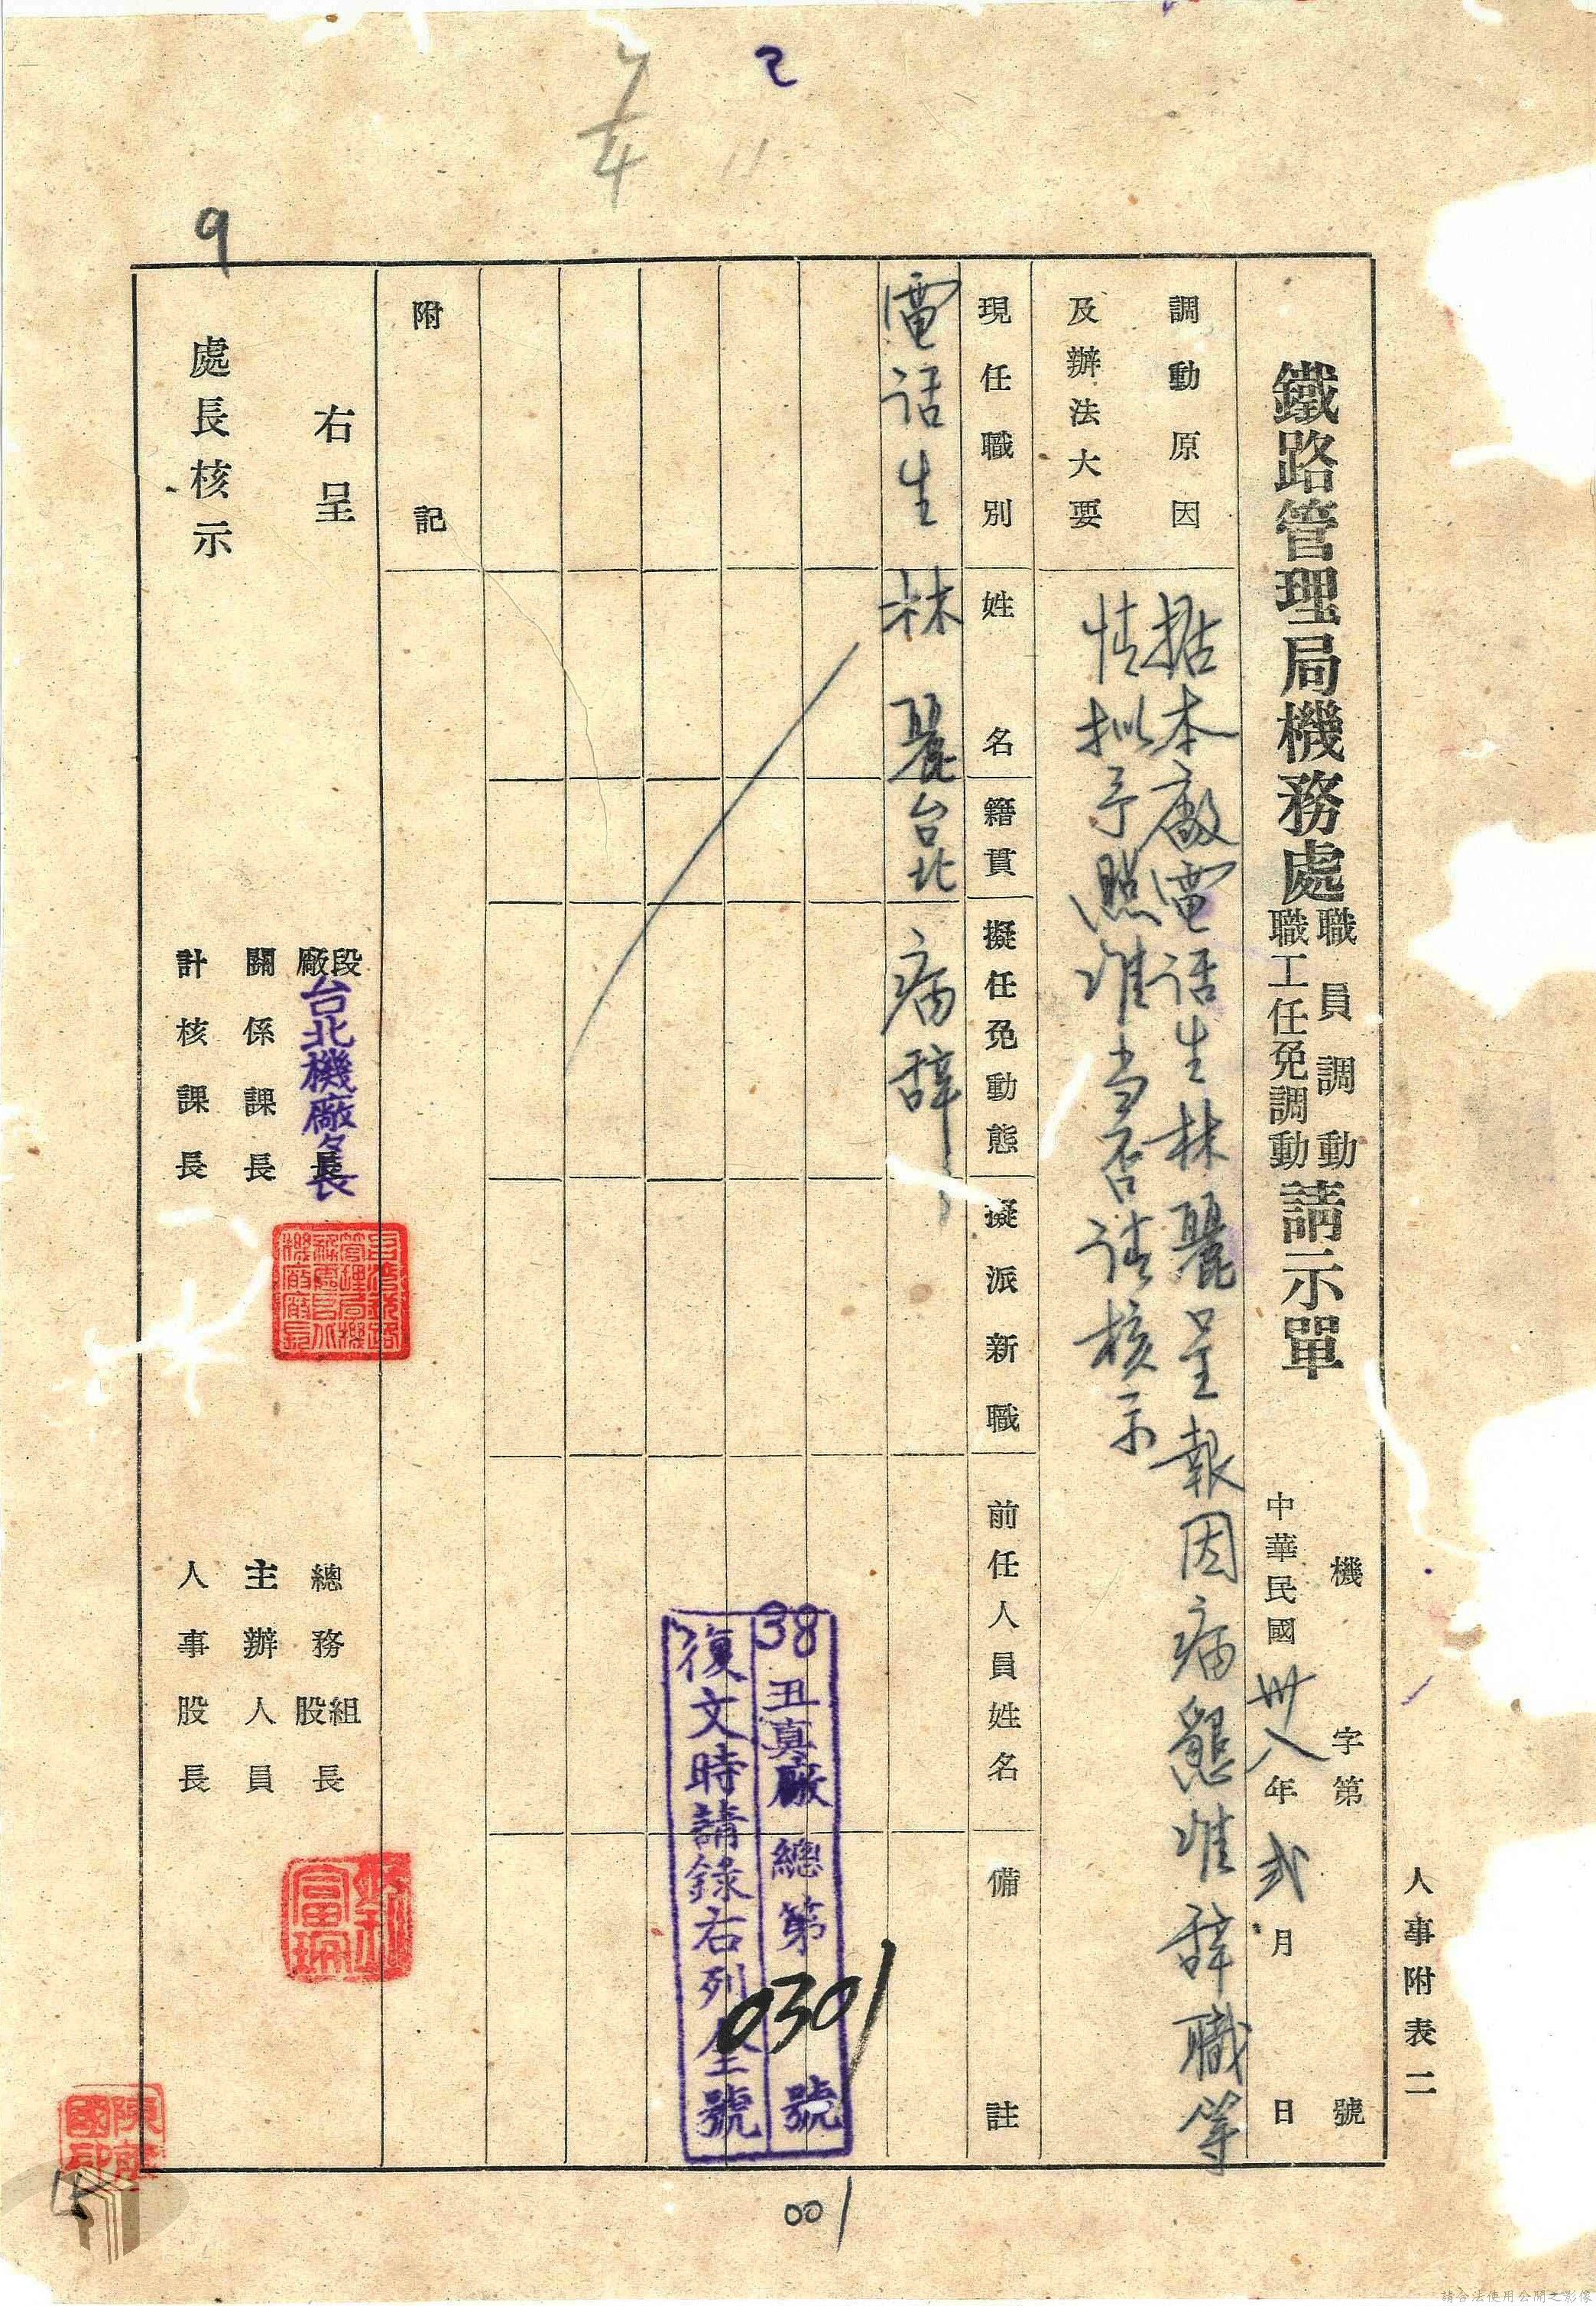 人事附表二
鐵路管理局機務處
職員調動
職工任免調動
請示單
機 字第 號
中華民國卅八年弍月 日
調動原因
及辦法大要
据本廠電话生林麗呈報因病懇准辞職等
情拟予照准当否请核示
現任職別
姓名
籍貫
擬任免動態
擬派新職
前任人員姓名
備註
電话生
林麗
台北
病辞
38丑真廠總第0301號
復文時請錄右列全號
附記
右呈
處長核示
廠段
台北機廠長
長
關係課長
計核課長
總務股組長
主辦人員
人事股長
9
001
請合法使用公開之影像